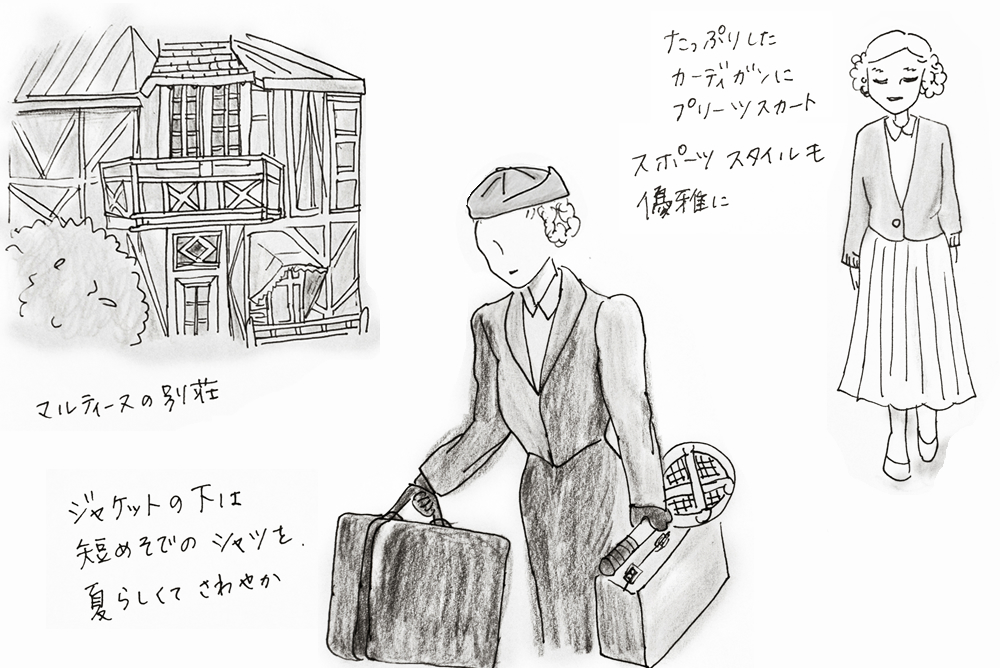 たっぷりした
カーディガンに
プリーツスカート
スポーツ スタイルも
優雅に
マルティーヌの別荘
ジャケットの下は
短めそでの シャツを.
夏らしくて さわやか